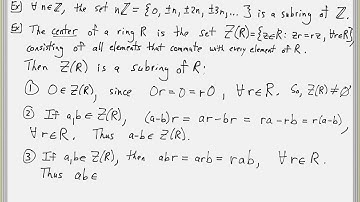 Ex ∀ n∈ℤ, the set nℤ = {0, ±n, ±2n, ±3n, ...} is a subring of ℤ.
Ex The center of a ring R is the set Z(R)={z∈R: zr=rz, ∀r∈R},
consisting of all elements that commute with every element of R.
Then Z(R) is a subring of R:
① 0∈Z(R), since 0r=0=r0, ∀r∈R. So, Z(R)≠∅.
② If a,b∈Z(R), (a-b)r = ar-br = ra-rb = r(a-b),
∀r∈R. Thus a-b∈Z(R).
③ If a,b∈Z(R), then abr=arb=rab, ∀r∈R.
Thus ab∈